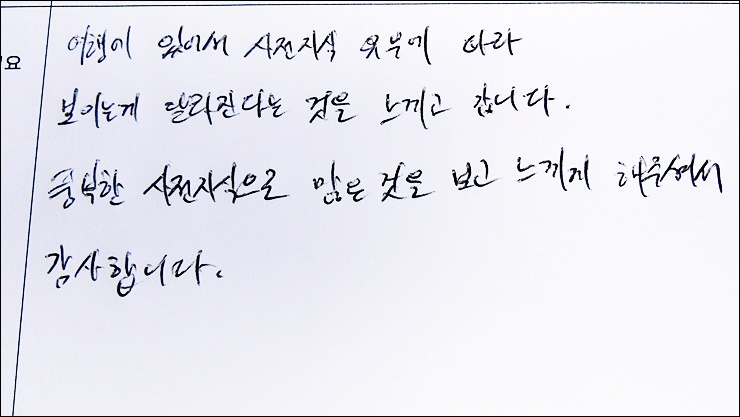 여행에 있어서 사전지식 유무에 따라
요
보이는게 달라진다는 것을 느끼고 갑니다.
풍부한 사전지식으로 많은 것을 보고 느끼게 해주셔서
감사합니다.